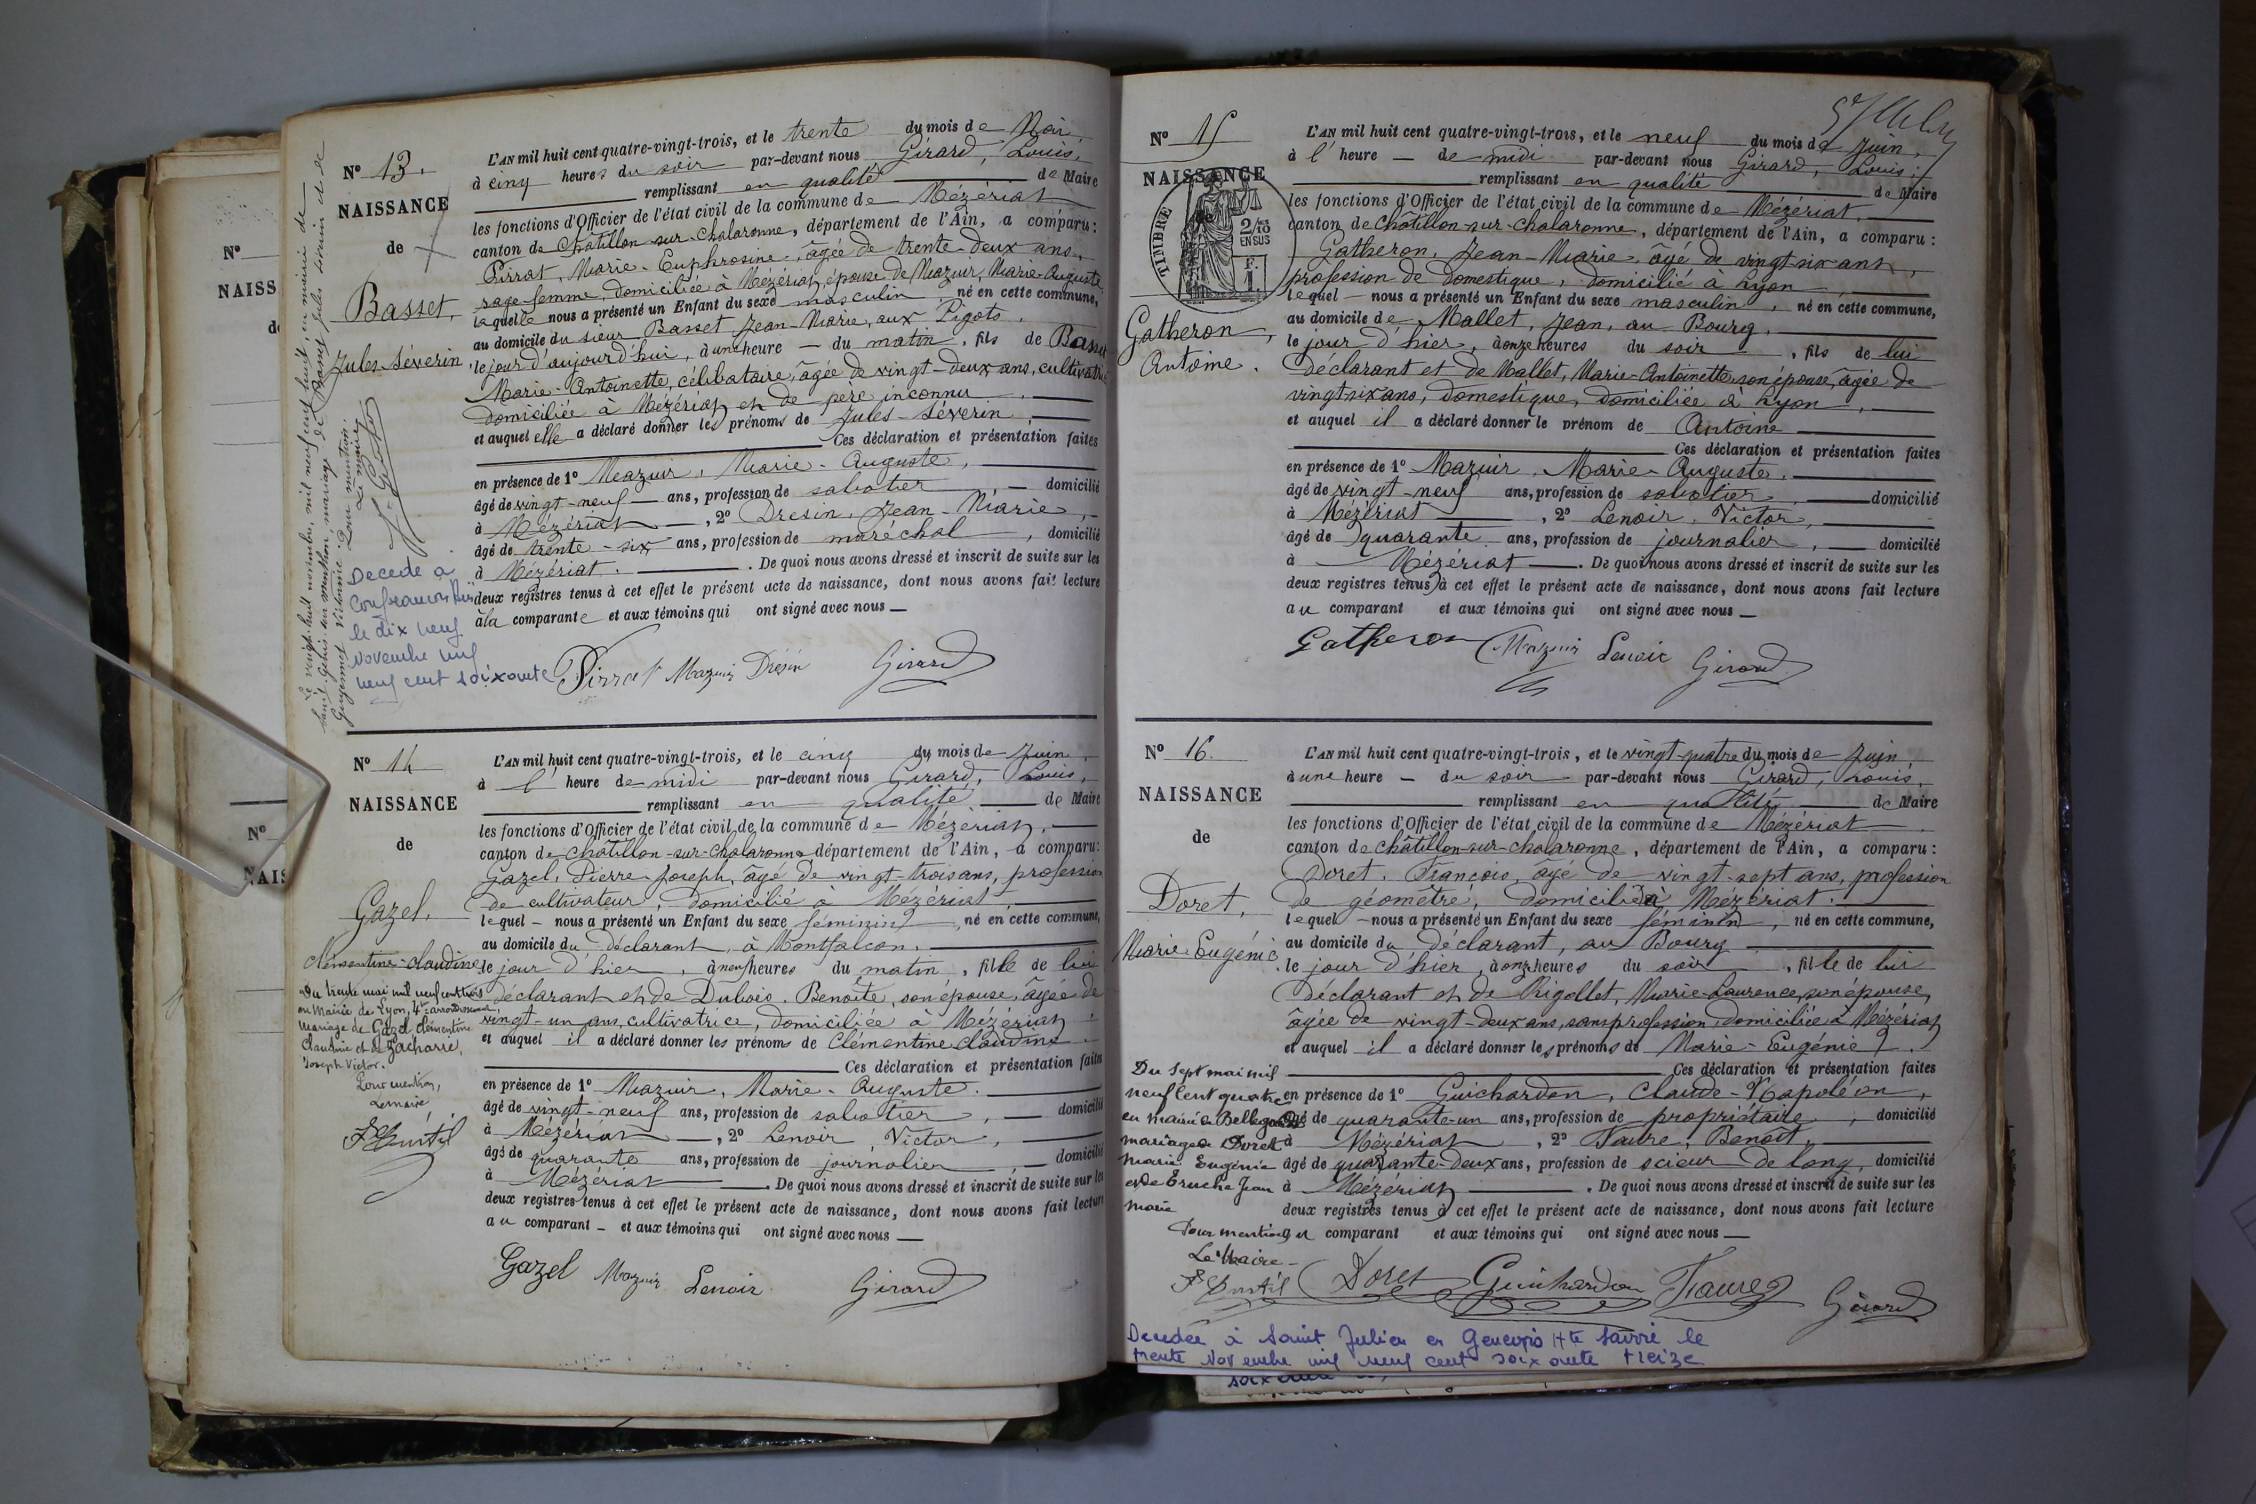 Nº 13.
NAISSANCE
de
Basset,
Jules-Séverin
L'AN mil huit cent quatre-vingt-trois, et le trente du mois de Mai,
à cinq heures du soir par-devant nous Girard, Louis,
remplissant en qualité de Maire
les fonctions d'Officier de l'état civil de la commune de Mézériat
canton de Châtillon-sur-Chalaronne, département de l'Ain, a comparu:
Pirrat, Marie-Euphrosine, âgée de trente-deux ans,
sage femme, domiciliée à Mézériat, épouse de Mazuir, Marie-Auguste
laquelle nous a présenté un Enfant du sexe masculin, né en cette commune,
au domicile du sieur Basset, Jean-Marie, aux Pigots.
le jour d'aujourd'hui, à une heure — du matin, fils de Basset
Marie-Antoinette, célibataire, âgée de vingt-deux ans, cultivatrice
domiciliée à Mézériat et de père inconnu
et auquel elle a déclaré donner les prénoms de Jules-Séverin
Ces déclaration et présentation faites
en présence de 1º Mazuir, Marie-Auguste,
âgé de vingt-neuf ans, profession de sabotier, domicilié
à Mézériat, 2º Dresin, Jean-Marie,
âgé de trente-six ans, profession de maréchal, domicilié
à Mézériat. De quoi nous avons dressé et inscrit de suite sur les
deux registres tenus à cet effet le présent acte de naissance, dont nous avons fait lecture
à la comparante et aux témoins qui ont signé avec nous —
Pirrat Mazuir Drésin Girard
Le vingt-huit novembre mil neuf cent huit, en mairie de
mariage de Basset Jules Séverin et de
Guyennet Victorine. Pour mention,
Le maire
Décédé à
Confrançon
le dix neuf
Novembre mil
neuf cent soixante
Nº 14
NAISSANCE
de
Gazel,
Clémentine-Claudine
L'AN mil huit cent quatre-vingt-trois, et le cinq du mois de Juin,
à l' heure de midi par-devant nous Girard, Louis,
remplissant en qualité de Maire
les fonctions d'Officier de l'état civil de la commune de Mézériat,
canton de Châtillon-sur-Chalaronne, département de l'Ain, a comparu:
Gazel, Pierre-Joseph, âgé de vingt-trois ans, profession
de cultivateur, domicilié à Mézériat
lequel — nous a présenté un Enfant du sexe féminin, né en cette commune,
au domicile du déclarant, à Montfalcon,
le jour d'hier, à neuf heures du matin, fille de lui
déclarant et de Dubois, Benoîte, son épouse, âgée de
vingt-un ans, cultivatrice, domiciliée à Mézériat,
et auquel il a déclaré donner les prénoms de Clémentine Claudine.
Ces déclaration et présentation faites
en présence de 1º Mazuir, Marie-Auguste.
âgé de vingt-neuf ans, profession de sabotier, domicilié
à Mézériat, 2º Lenoir, Victor,
âgé de quarante ans, profession de journalier, domicilié
à Mézériat. De quoi nous avons dressé et inscrit de suite sur les
deux registres tenus à cet effet le présent acte de naissance, dont nous avons fait lecture
au comparant — et aux témoins qui ont signé avec nous —
Gazel Mazuir Lenoir Girard
Du trente mai mil neuf cent trois
en Mairie de Lyon, 4e arrondissement
mariage de Gazel Clémentine
Claudine et de Zacharie,
Joseph Victor.
Pour mention,
Le maire
Nº 15
NAISSANCE
TIMBRE
2/10
EN SUS
F.
1
Gatheron,
Antoine.
L'AN mil huit cent quatre-vingt-trois, et le neuf du mois de Juin,
à l' heure — de midi par-devant nous Girard, Louis,
remplissant en qualité de Maire
les fonctions d'Officier de l'état civil de la commune de Mézériat.
canton de Châtillon-sur-Chalaronne, département de l'Ain, a comparu:
Gatheron, Jean-Marie, âgé de vingt-six ans,
profession de domestique, domicilié à Lyon,
lequel — nous a présenté un Enfant du sexe masculin, né en cette commune,
au domicile de Mallet, Jean, au Bourg,
le jour d'hier, à onze heures du soir, fils de lui
déclarant et de Mallet, Marie-Antoinette, son épouse, âgée de
vingt-six ans, domestique, domiciliée à Lyon,
et auquel il a déclaré donner le prénom de Antoine
Ces déclaration et présentation faites
en présence de 1º Mazuir, Marie-Auguste,
âgé de vingt-neuf ans, profession de sabotier, domicilié
à Mézériat, 2º Lenoir, Victor,
âgé de quarante ans, profession de journalier, domicilié
à Mézériat. De quoi nous avons dressé et inscrit de suite sur les
deux registres tenus à cet effet le présent acte de naissance, dont nous avons fait lecture
au comparant et aux témoins qui ont signé avec nous —
Gatheron Mazuir Lenoir Girard
Nº 16.
NAISSANCE
de
Doret,
Marie-Eugénie
L'AN mil huit cent quatre-vingt-trois, et le vingt-quatre du mois de Juin
à une heure — du soir par-devant nous Girard, Louis,
remplissant en qualité de Maire
les fonctions d'Officier de l'état civil de la commune de Mézériat
canton de Châtillon-sur-Chalaronne, département de l'Ain, a comparu:
Doret, François, âgé de vingt-sept ans, profession
de géomètre, domicilié à Mézériat.
lequel — nous a présenté un Enfant du sexe féminin, né en cette commune,
au domicile du déclarant, au Bourg
le jour d'hier, à onze heures du soir, fille de lui
déclarant et de Rigollet, Marie-Laurence, son épouse,
âgée de vingt-deux ans, sans profession, domiciliée à Mézériat
et auquel il a déclaré donner les prénoms de Marie-Eugénie.
Ces déclaration et présentation faites
en présence de 1º Guichardon, Claude-Napoléon,
âgé de quarante-un ans, profession de propriétaire, domicilié
à Mézériat, 2º Faure, Benoît,
âgé de quarante-deux ans, profession de scieur de long, domicilié
à Mézériat. De quoi nous avons dressé et inscrit de suite sur les
deux registres tenus à cet effet le présent acte de naissance, dont nous avons fait lecture
au comparant et aux témoins qui ont signé avec nous —
Doret Guichardon Faure Girard
Du sept mai mil
neuf cent quatre
en mairie de Bellegarde
mariage de Doret
Marie Eugénie
et de Truche Jean
Marie
Pour mention
Le Maire
Décédée à Saint Julien en Genevois Hte Savoie le
trente Novembre mil neuf cent soixante treize
Nº
NAISS
de
Nº
NAIS